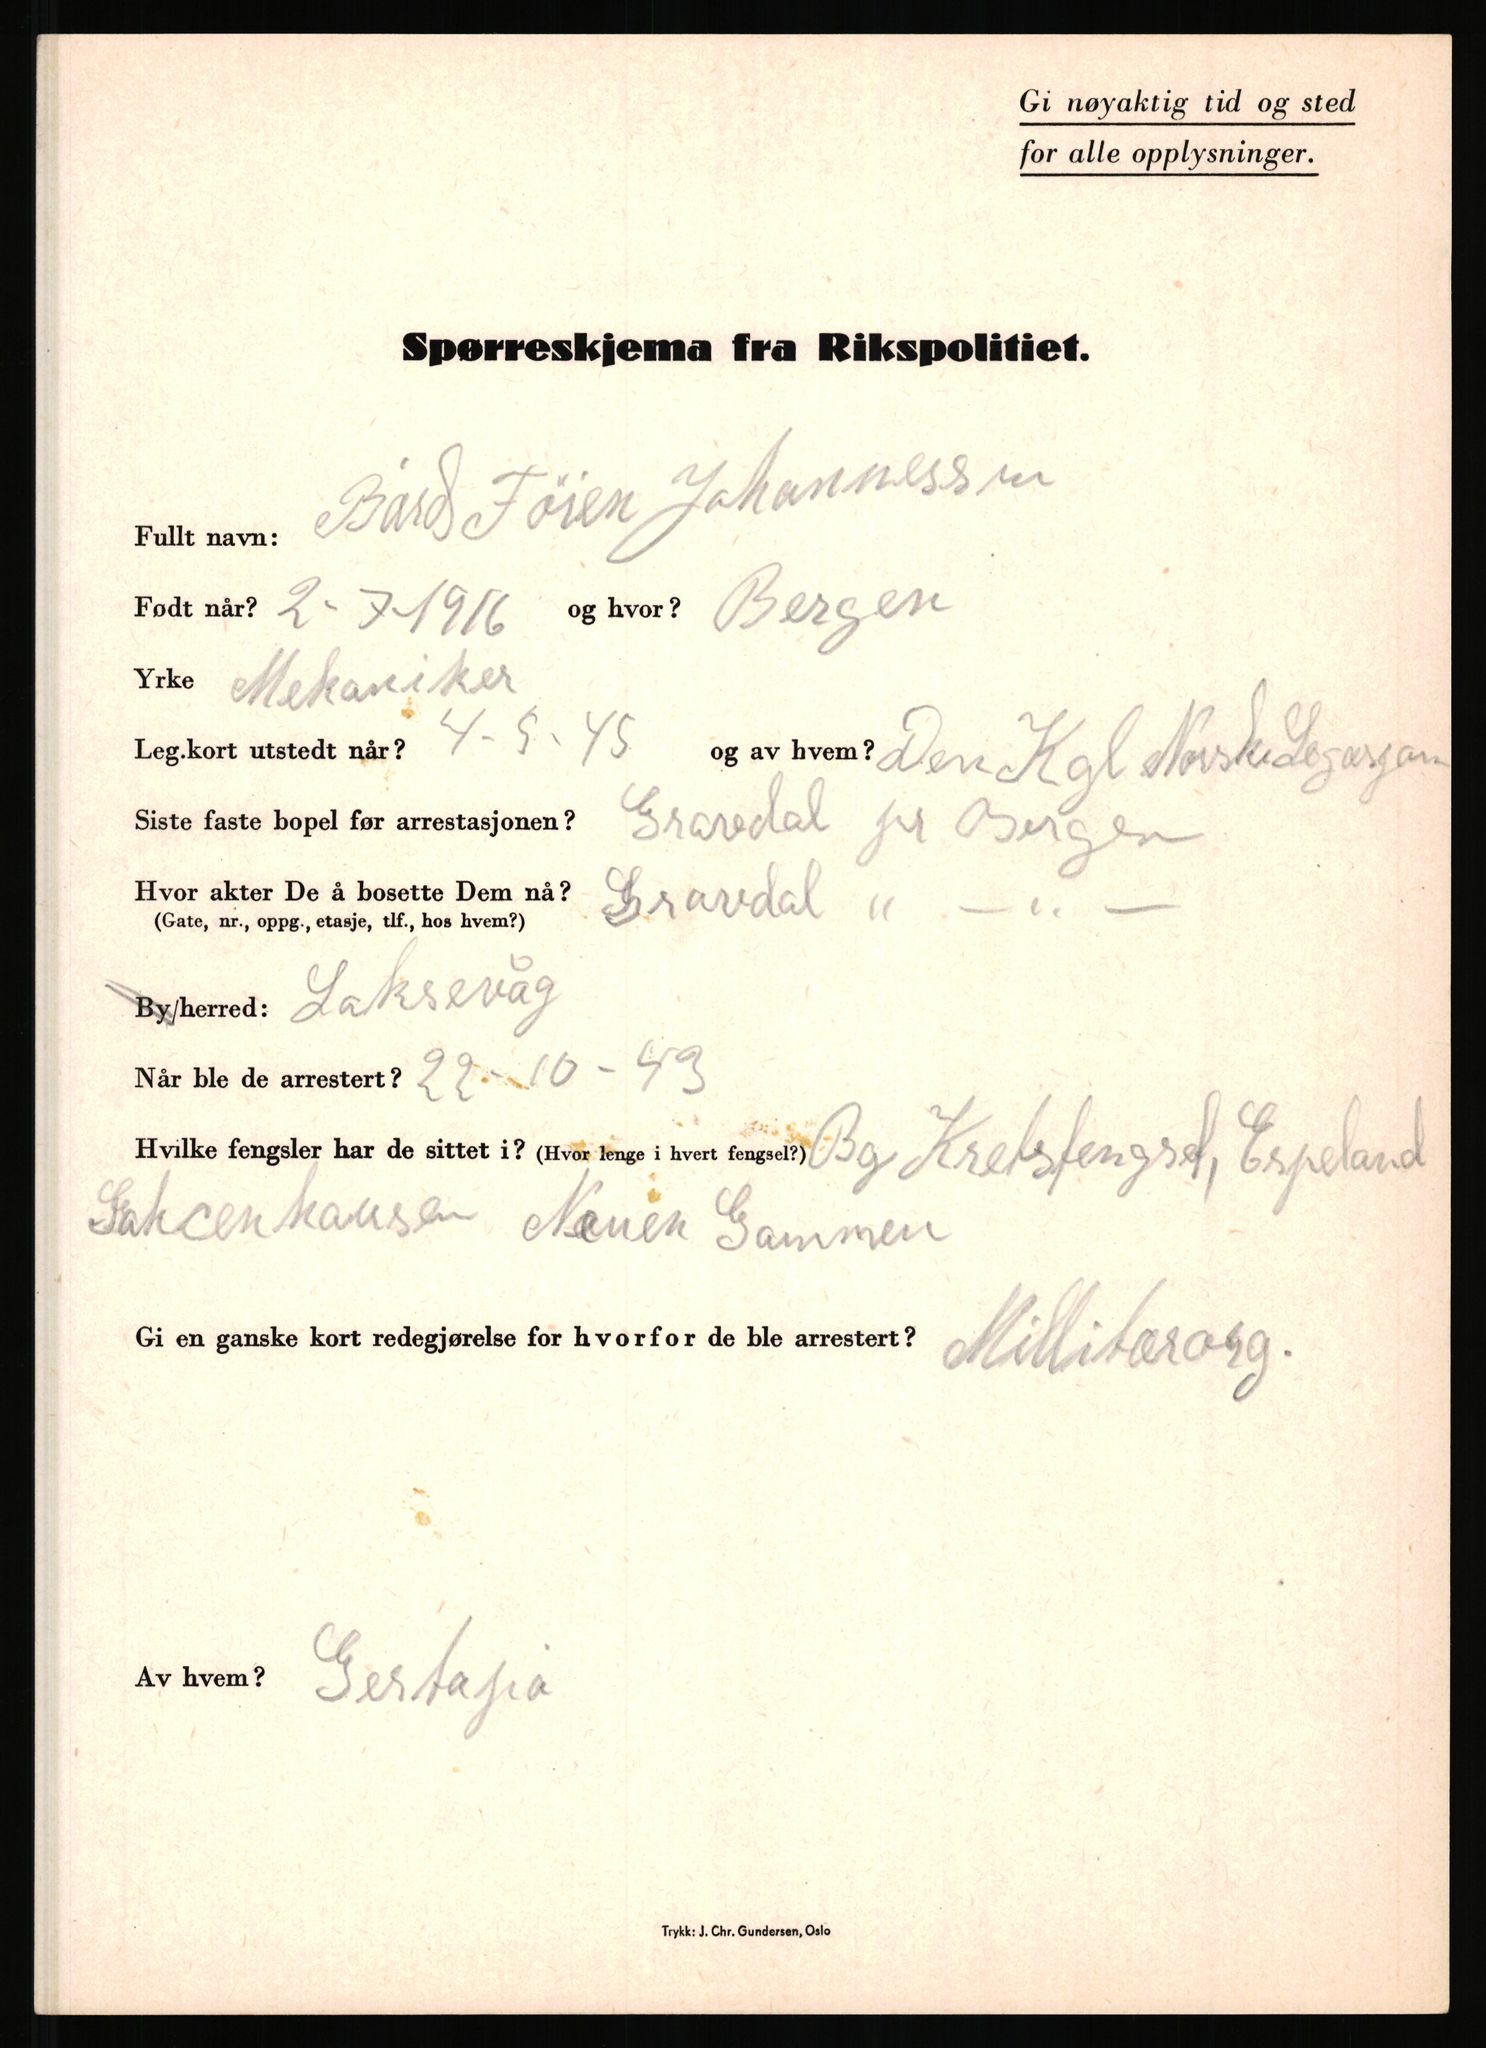 Gi nøyaktig tid og sted
for alle opplysninger.
Spørreskjema fra Rikspolitiet.
Fullt navn: Bård Föien Johannessen
Født når? 2-7-1916 og hvor? Bergen
Yrke Mekaniker
Leg.kort utstedt når? 4-5-45 og av hvem? Den Kgl Norsk
Siste faste bopel før arrestasjonen? Gravdal pr Bergen
Hvor akter De å bosette Dem nå? Gravdal " — " —
(Gate, nr., oppg., etasje, tlf., hos hvem?)
By/herred: Laksevåg
Når ble de arrestert? 22-10-43
Hvilke fengsler har de sittet i? (Hvor lenge i hvert fengsel?) Bg Kretsfengsel, Espeland
Sahcenhausen Neuen Gammen
Gi en ganske kort redegjørelse for hvorfor de ble arrestert? Millitærorg.
Av hvem? Gertapia
Trykk: J. Chr. Gundersen, Oslo